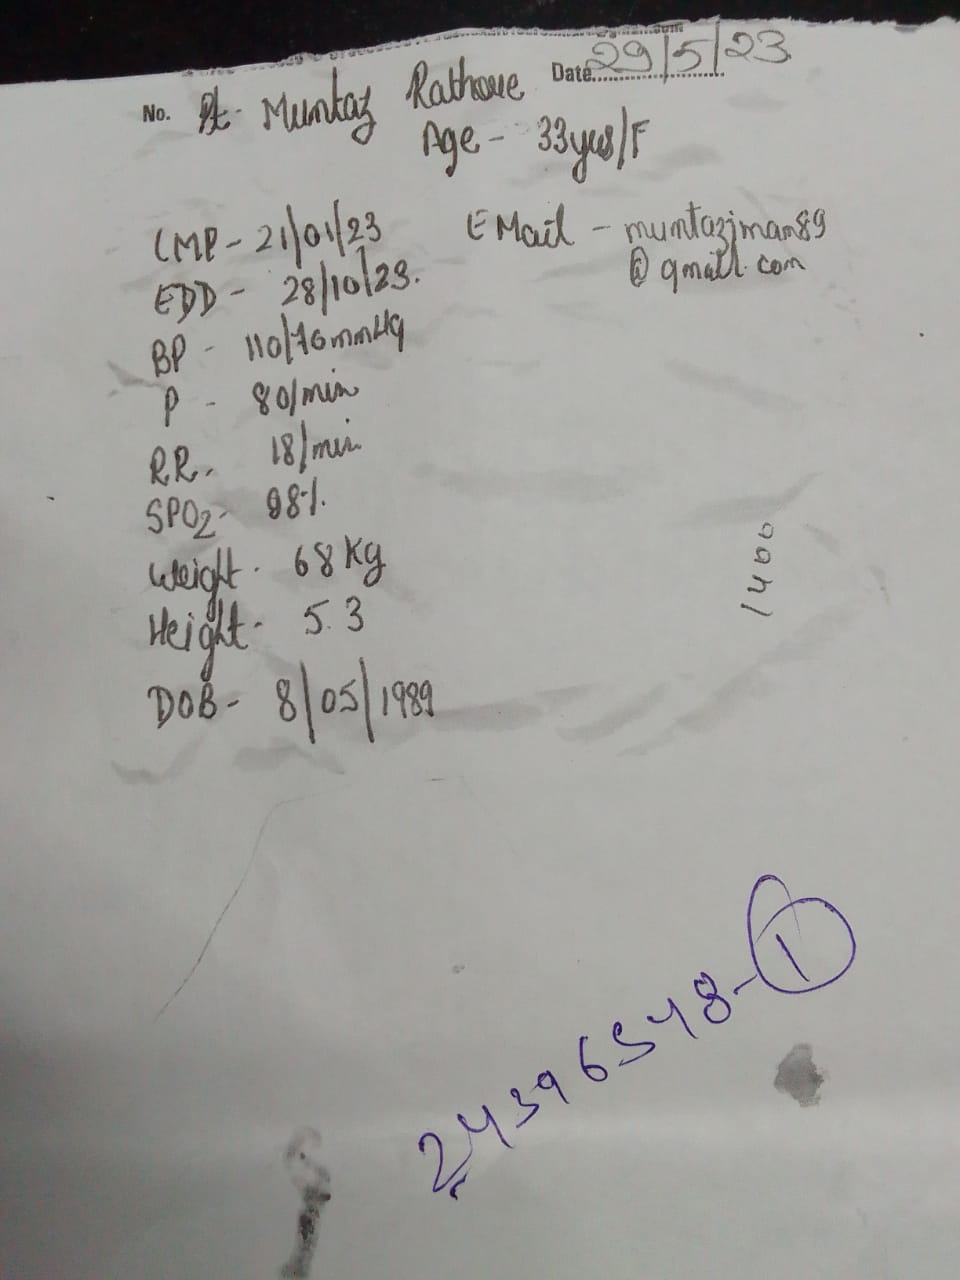 Date 29/5/23
No. Pt- Mumtaz Rathore
Age - 33yrs/F
LMP - 21/01/23
EMail - mumtaziman89
@gmail.com
EDD - 28/10/23.
BP - 110/70mmHg
P - 80/min
RR - 18/min
SPO2 - 98%
Weight - 68 Kg
Height - 5.3
DOB - 8/05/1989
1400
24396548-1